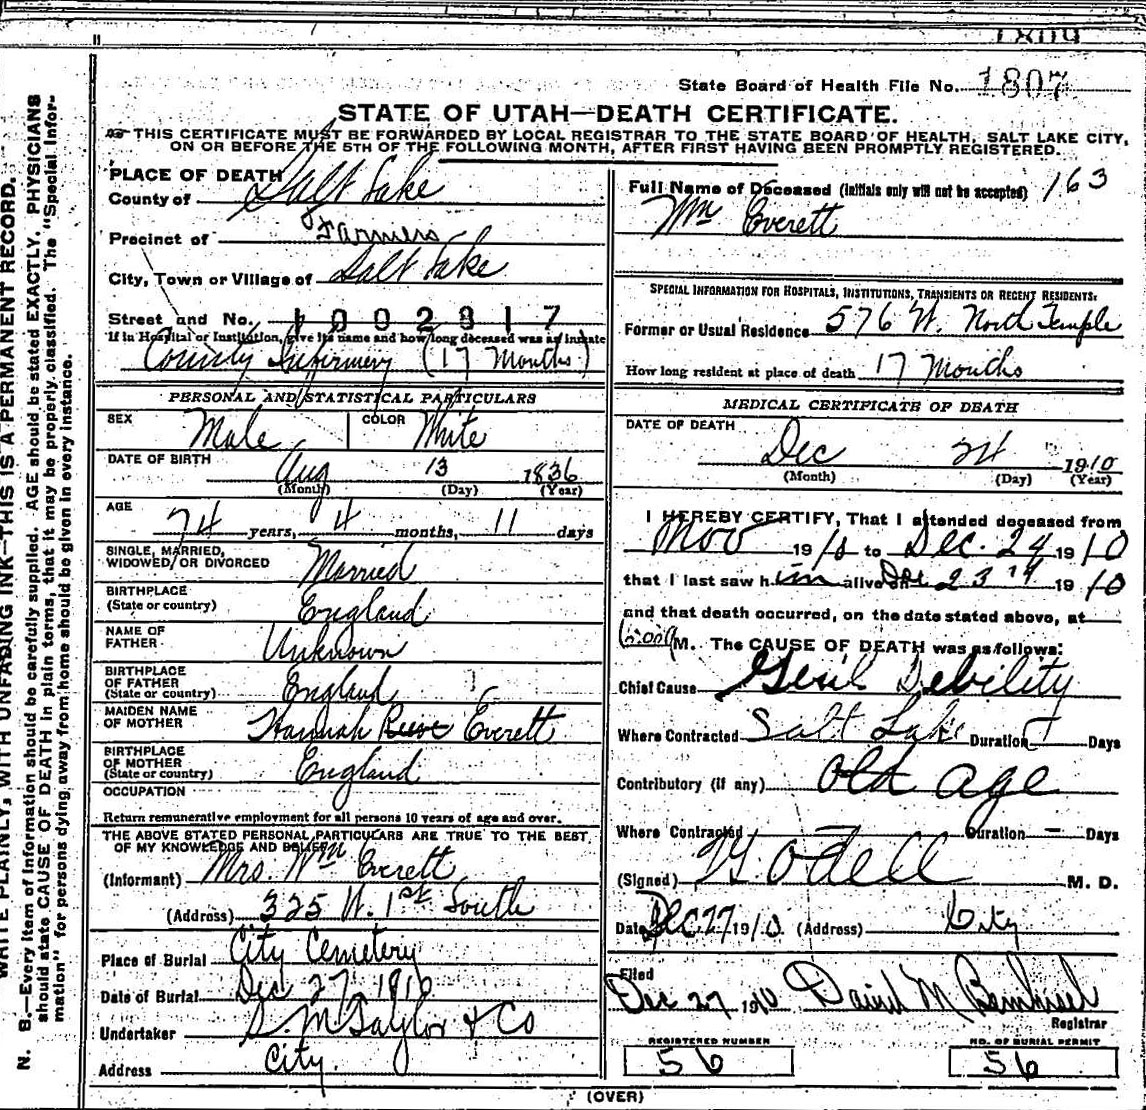 1809
State Board of Health File No. 1807
STATE OF UTAH—DEATH CERTIFICATE.
THIS CERTIFICATE MUST BE FORWARDED BY LOCAL REGISTRAR TO THE STATE BOARD OF HEALTH, SALT LAKE CITY,
ON OR BEFORE THE 5TH OF THE FOLLOWING MONTH, AFTER FIRST HAVING BEEN PROMPTLY REGISTERED.
WRITE PLAINLY, WITH UNFADING INK—THIS IS A PERMANENT RECORD.
N. B.—Every item of information should be carefully supplied. AGE should be stated EXACTLY. PHYSICIANS
should state CAUSE OF DEATH in plain terms, that it may be properly classified. The "Special Infor-
mation" for persons dying away from home should be given in every instance.
PLACE OF DEATH
County of Salt Lake
Precinct of Farmers
City, Town or Village of Salt Lake
Street and No. 1002817
If in Hospital or Institution, give its name and how long deceased was as inmate
County Infirmery (17 Months)
PERSONAL AND STATISTICAL PARTICULARS
SEX Male COLOR White
DATE OF BIRTH Aug 13 1836
(Month) (Day) (Year)
AGE 74 years, 4 months, 11 days
SINGLE, MARRIED,
WIDOWED, OR DIVORCED Married
BIRTHPLACE
(State or country) England
NAME OF
FATHER Unknown
BIRTHPLACE
OF FATHER
(State or country) England
MAIDEN NAME
OF MOTHER Hannah Reeve Everett
BIRTHPLACE
OF MOTHER
(State or country) England
OCCUPATION
Return remunerative employment for all persons 10 years of age and over.
THE ABOVE STATED PERSONAL PARTICULARS ARE TRUE TO THE BEST
OF MY KNOWLEDGE AND BELIEF
(Informant) Mrs. Wm Everett
(Address) 325 W. 1st South
Place of Burial City Cemetery
Date of Burial Dec 27 1910
Undertaker S. M Taylor & Co
Address City.
Full Name of Deceased (initials only will not be accepted) 163
Wm Everett
SPECIAL INFORMATION FOR HOSPITALS, INSTITUTIONS, TRANSIENTS OR RECENT RESIDENTS:
Former or Usual Residence 576 W. North Temple
How long resident at place of death 17 Months
MEDICAL CERTIFICATE OF DEATH
DATE OF DEATH
Dec 24 1910
(Month) (Day) (Year)
I HEREBY CERTIFY, That I attended deceased from
Nov 1910 to Dec. 24 1910
that I last saw him alive on Dec 23rd 1910
and that death occurred, on the date stated above, at
M. The CAUSE OF DEATH was as follows:
Chief Cause Genl Debility
Where Contracted Salt Lake Duration — Days
Contributory (if any) Old age
Where Contracted — Duration — Days
(Signed) Odell M. D.
Date Dec 27 1910 (Address) City
Filed
Dec 27 1910 David M
Registrar
REGISTERED NUMBER
56
NO. OF BURIAL PERMIT
56
(OVER)